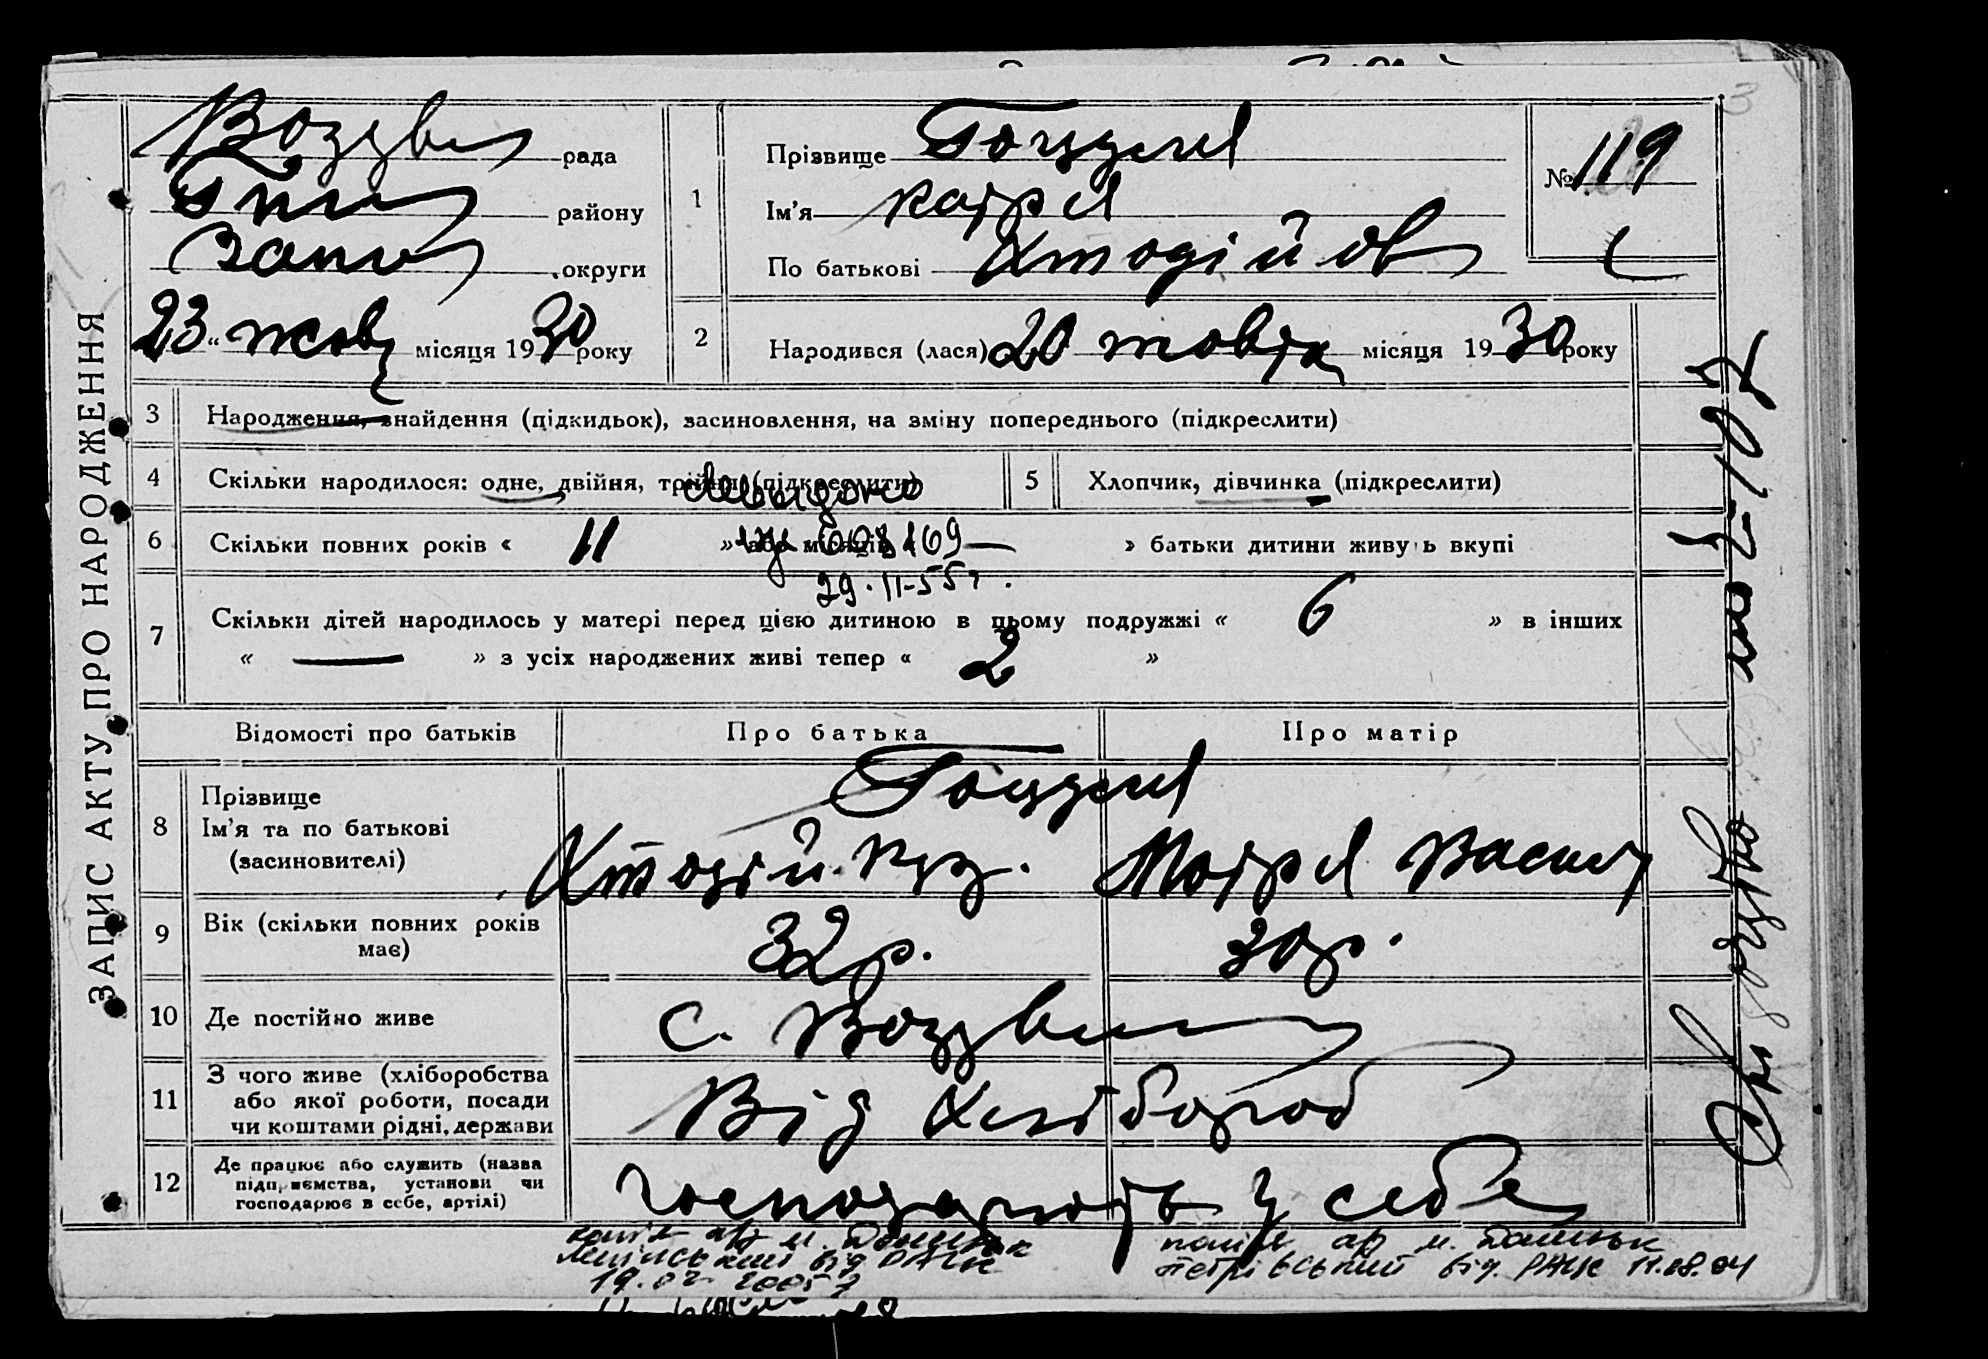 ЗАПИС АКТУ ПРО НАРОДЖЕННЯ
Воздви рада
району
округи
23 " жовт місяця 1930 року
1
Прізвище
Ім'я Катря
По батькові
№ 119
2
Народився (лася) 20 жовтн місяця 1930 року
3 Народження, знайдення (підкидьок), засиновлення, на зміну попереднього (підкреслити)
4 Скільки народилося: одне, двійня, трійня (підкреслити)
5 Хлопчик, дівчинка (підкреслити)
6 Скільки повних років « 11 » або місяців « » батьки дитини живуть вкупі
29.11-55г.
7 Скільки дітей народилось у матері перед цією дитиною в цьому подружжі « 6 » в інших
« — » з усіх народжених живі тепер « 2 »
Відомості про батьків Про батька Про матір
8 Прізвище
Ім'я та по батькові
(засиновителі)
Мотря Васил
9 Вік (скільки повних років
має)
32 р. 30 р.
10 Де постійно живе с. Воздви
11 З чого живе (хліборобства
або якої роботи, посади
чи коштами рідні, держави
Від хлібороб
12 Де працює або служить (назва
підприємства, установи чи
господарює в себе, артілі)
господарюють у себе
копія ар м. Донецьк
Ленінський від РАЦС
19.02 2005 р
копія ар м. Донецьк
Петрівський від. РАЦС 11.08.04